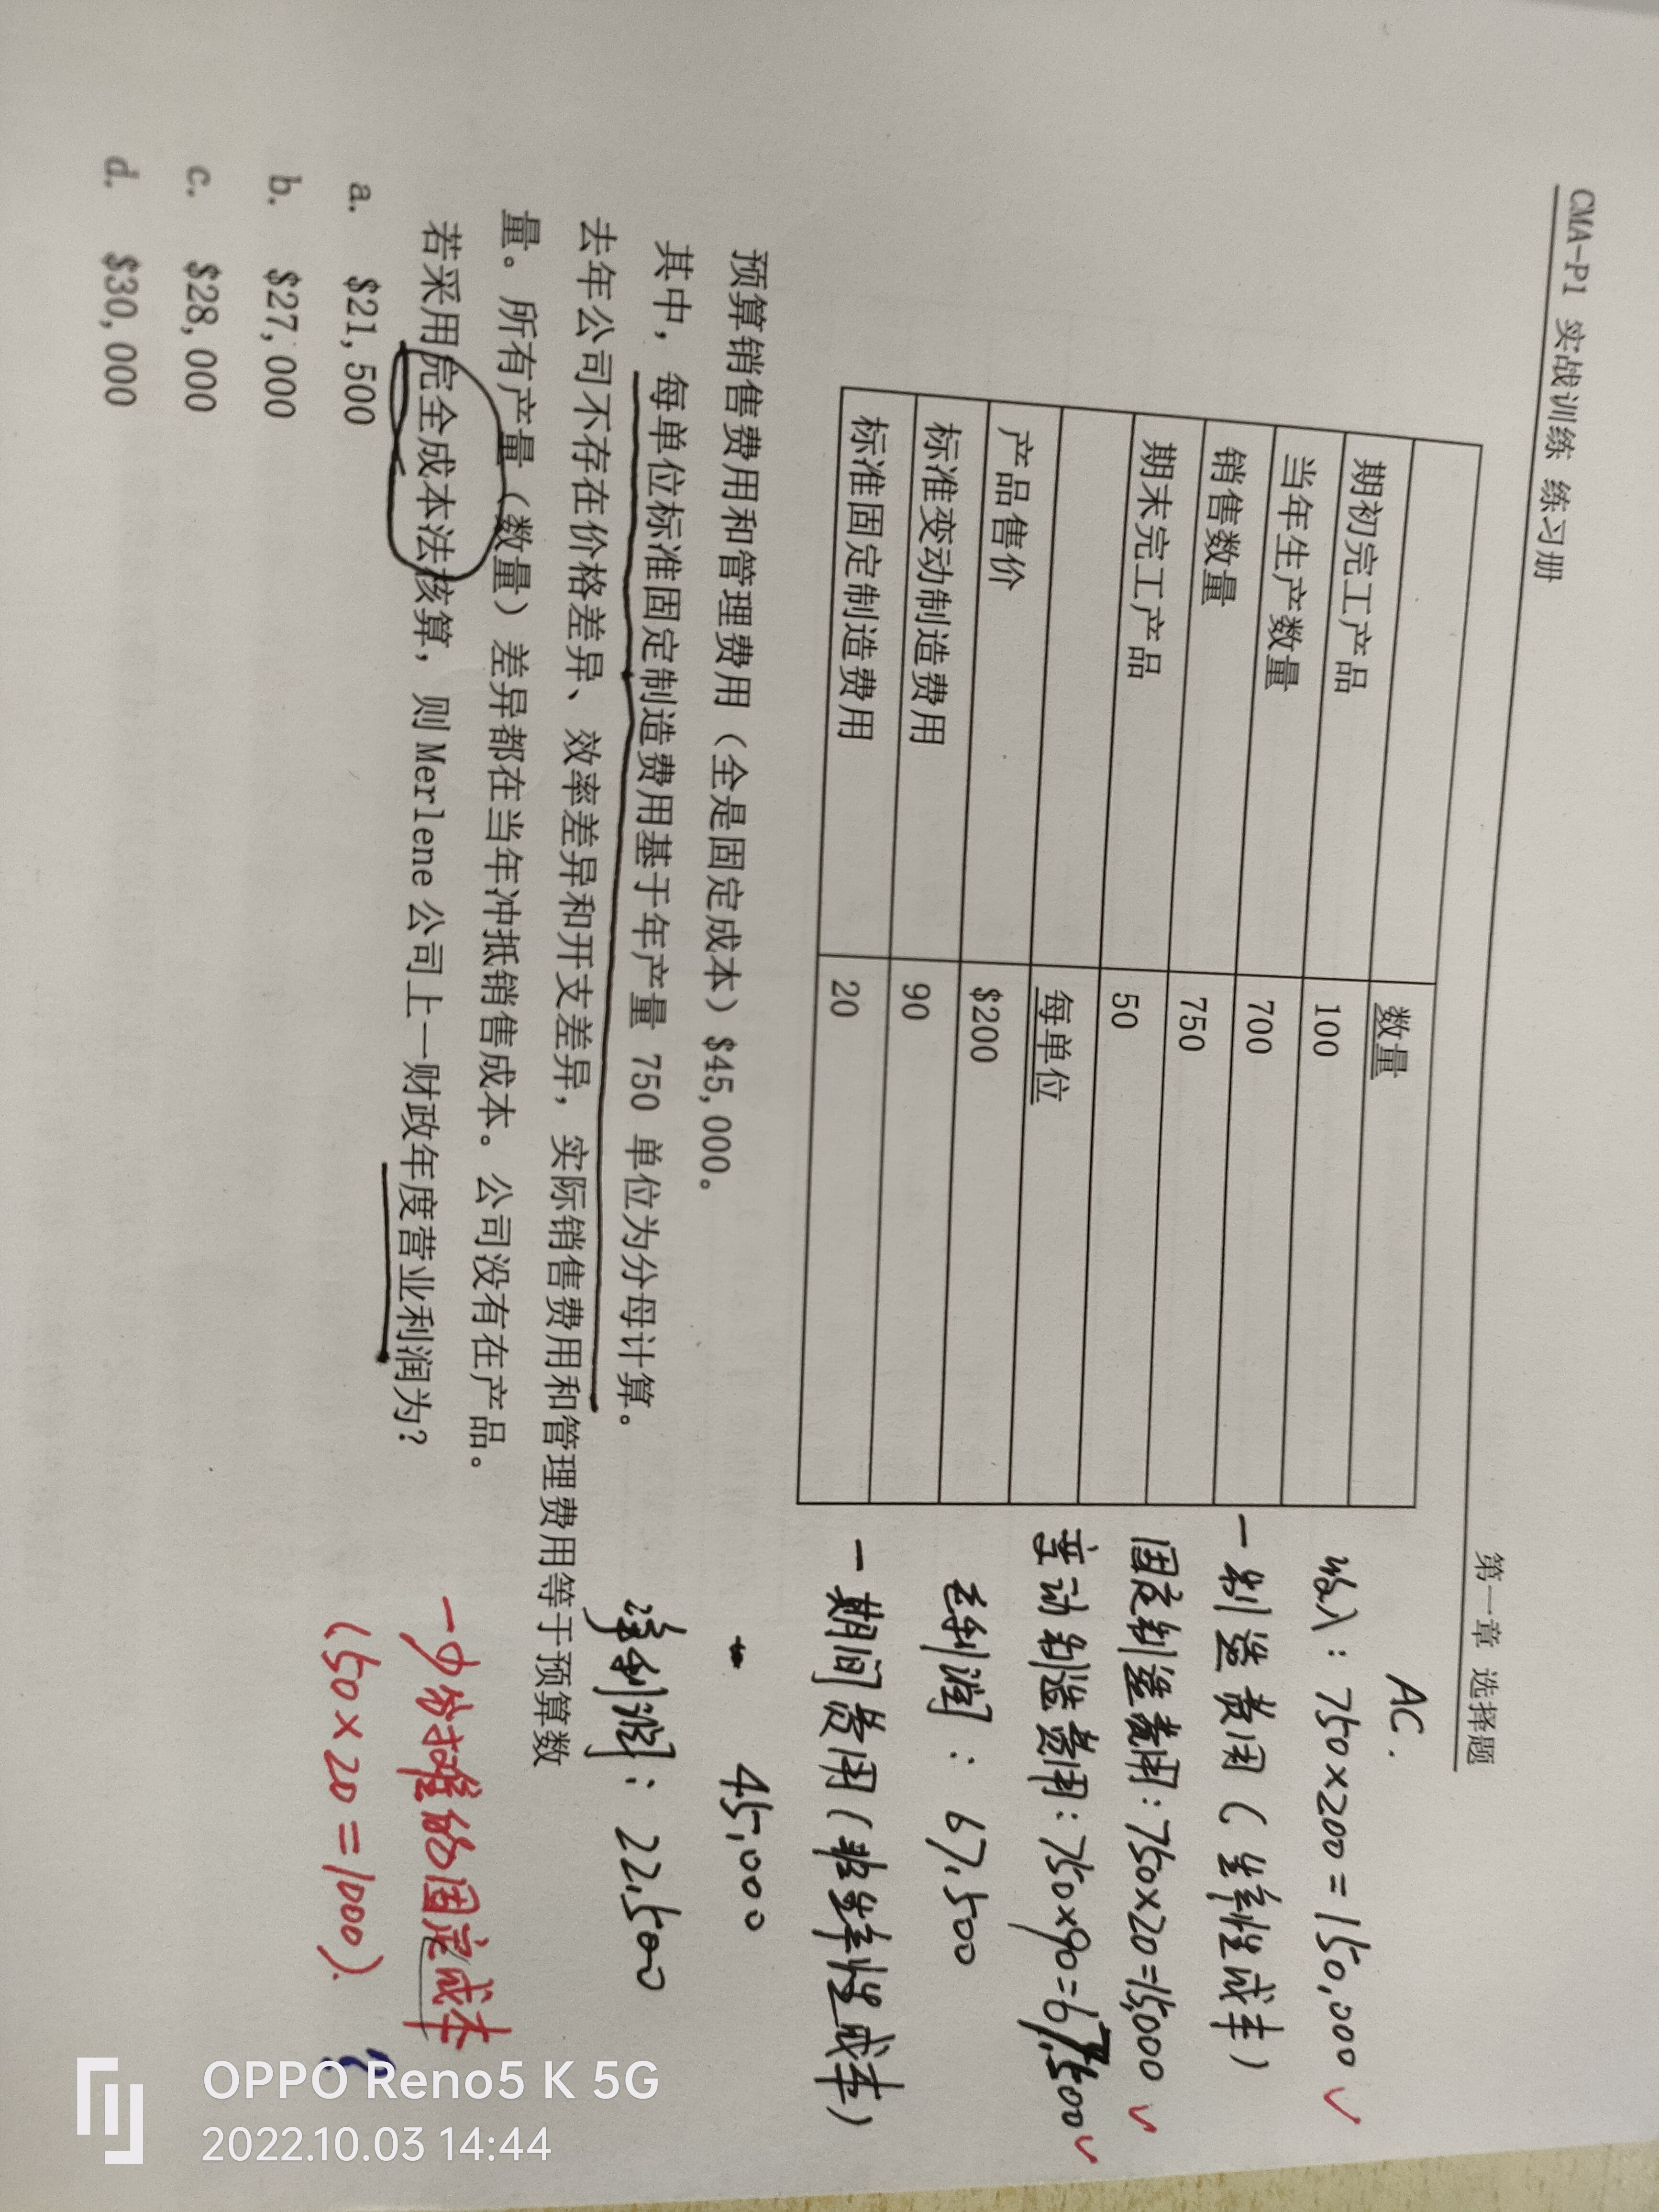 CMA-P1 实战训练 练习册
第一章 选择题
数量
期初完工产品 100
当年生产数量 700
销售数量 750
期末完工产品 50
每单位
产品售价 $200
标准变动制造费用 90
标准固定制造费用 20
预算销售费用和管理费用（全是固定成本）$45,000。
其中，每单位标准固定制造费用基于年产量 750 单位为分母计算。
去年公司不存在价格差异、效率差异和开支差异，实际销售费用和管理费用等于预算数
量。所有产量（数量）差异都在当年冲抵销售成本。公司没有在产品。
若采用完全成本法核算，则 Merlene 公司上一财政年度营业利润为？
a. $21,500
b. $27,000
c. $28,000
d. $30,000
AC.
收入：750×200=150,000
一制造费用（生产性成本）
固定制造费用：750×20=15,000
变动制造费用：750×90=67,500
毛利润：67,500
一期间费用（非生产性成本）
45,000
净利润：22,500
一少分摊的固定成本
(50×20=1000).
?
OPPO Reno5 K 5G
2022.10.03 14:44